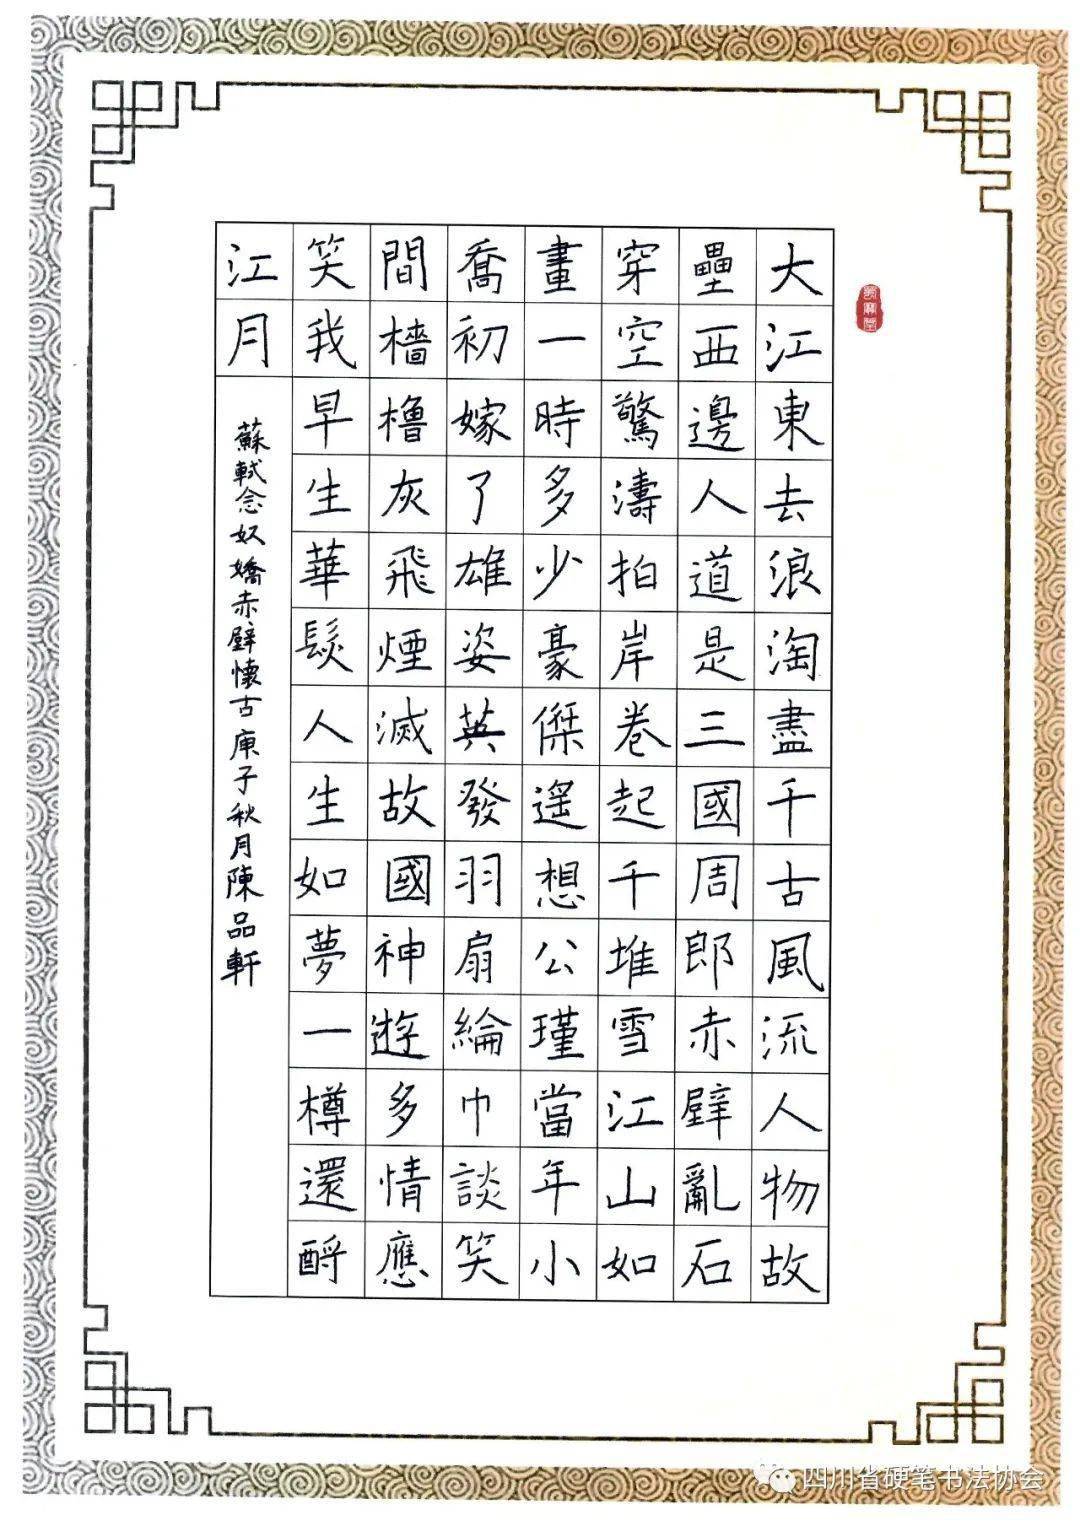 大江東去浪淘盡千古風流人物故
壘西邊人道是三國周郎赤壁亂石
穿空驚濤拍岸卷起千堆雪江山如
畫一時多少豪傑遙想公瑾當年小
喬初嫁了雄姿英發羽扇綸巾談笑
間檣櫓灰飛煙滅故國神遊多情應
笑我早生華髮人生如夢一樽還酹
江月
蘇軾念奴嬌赤壁懷古庚子秋月陳品軒
四川省硬笔书法协会